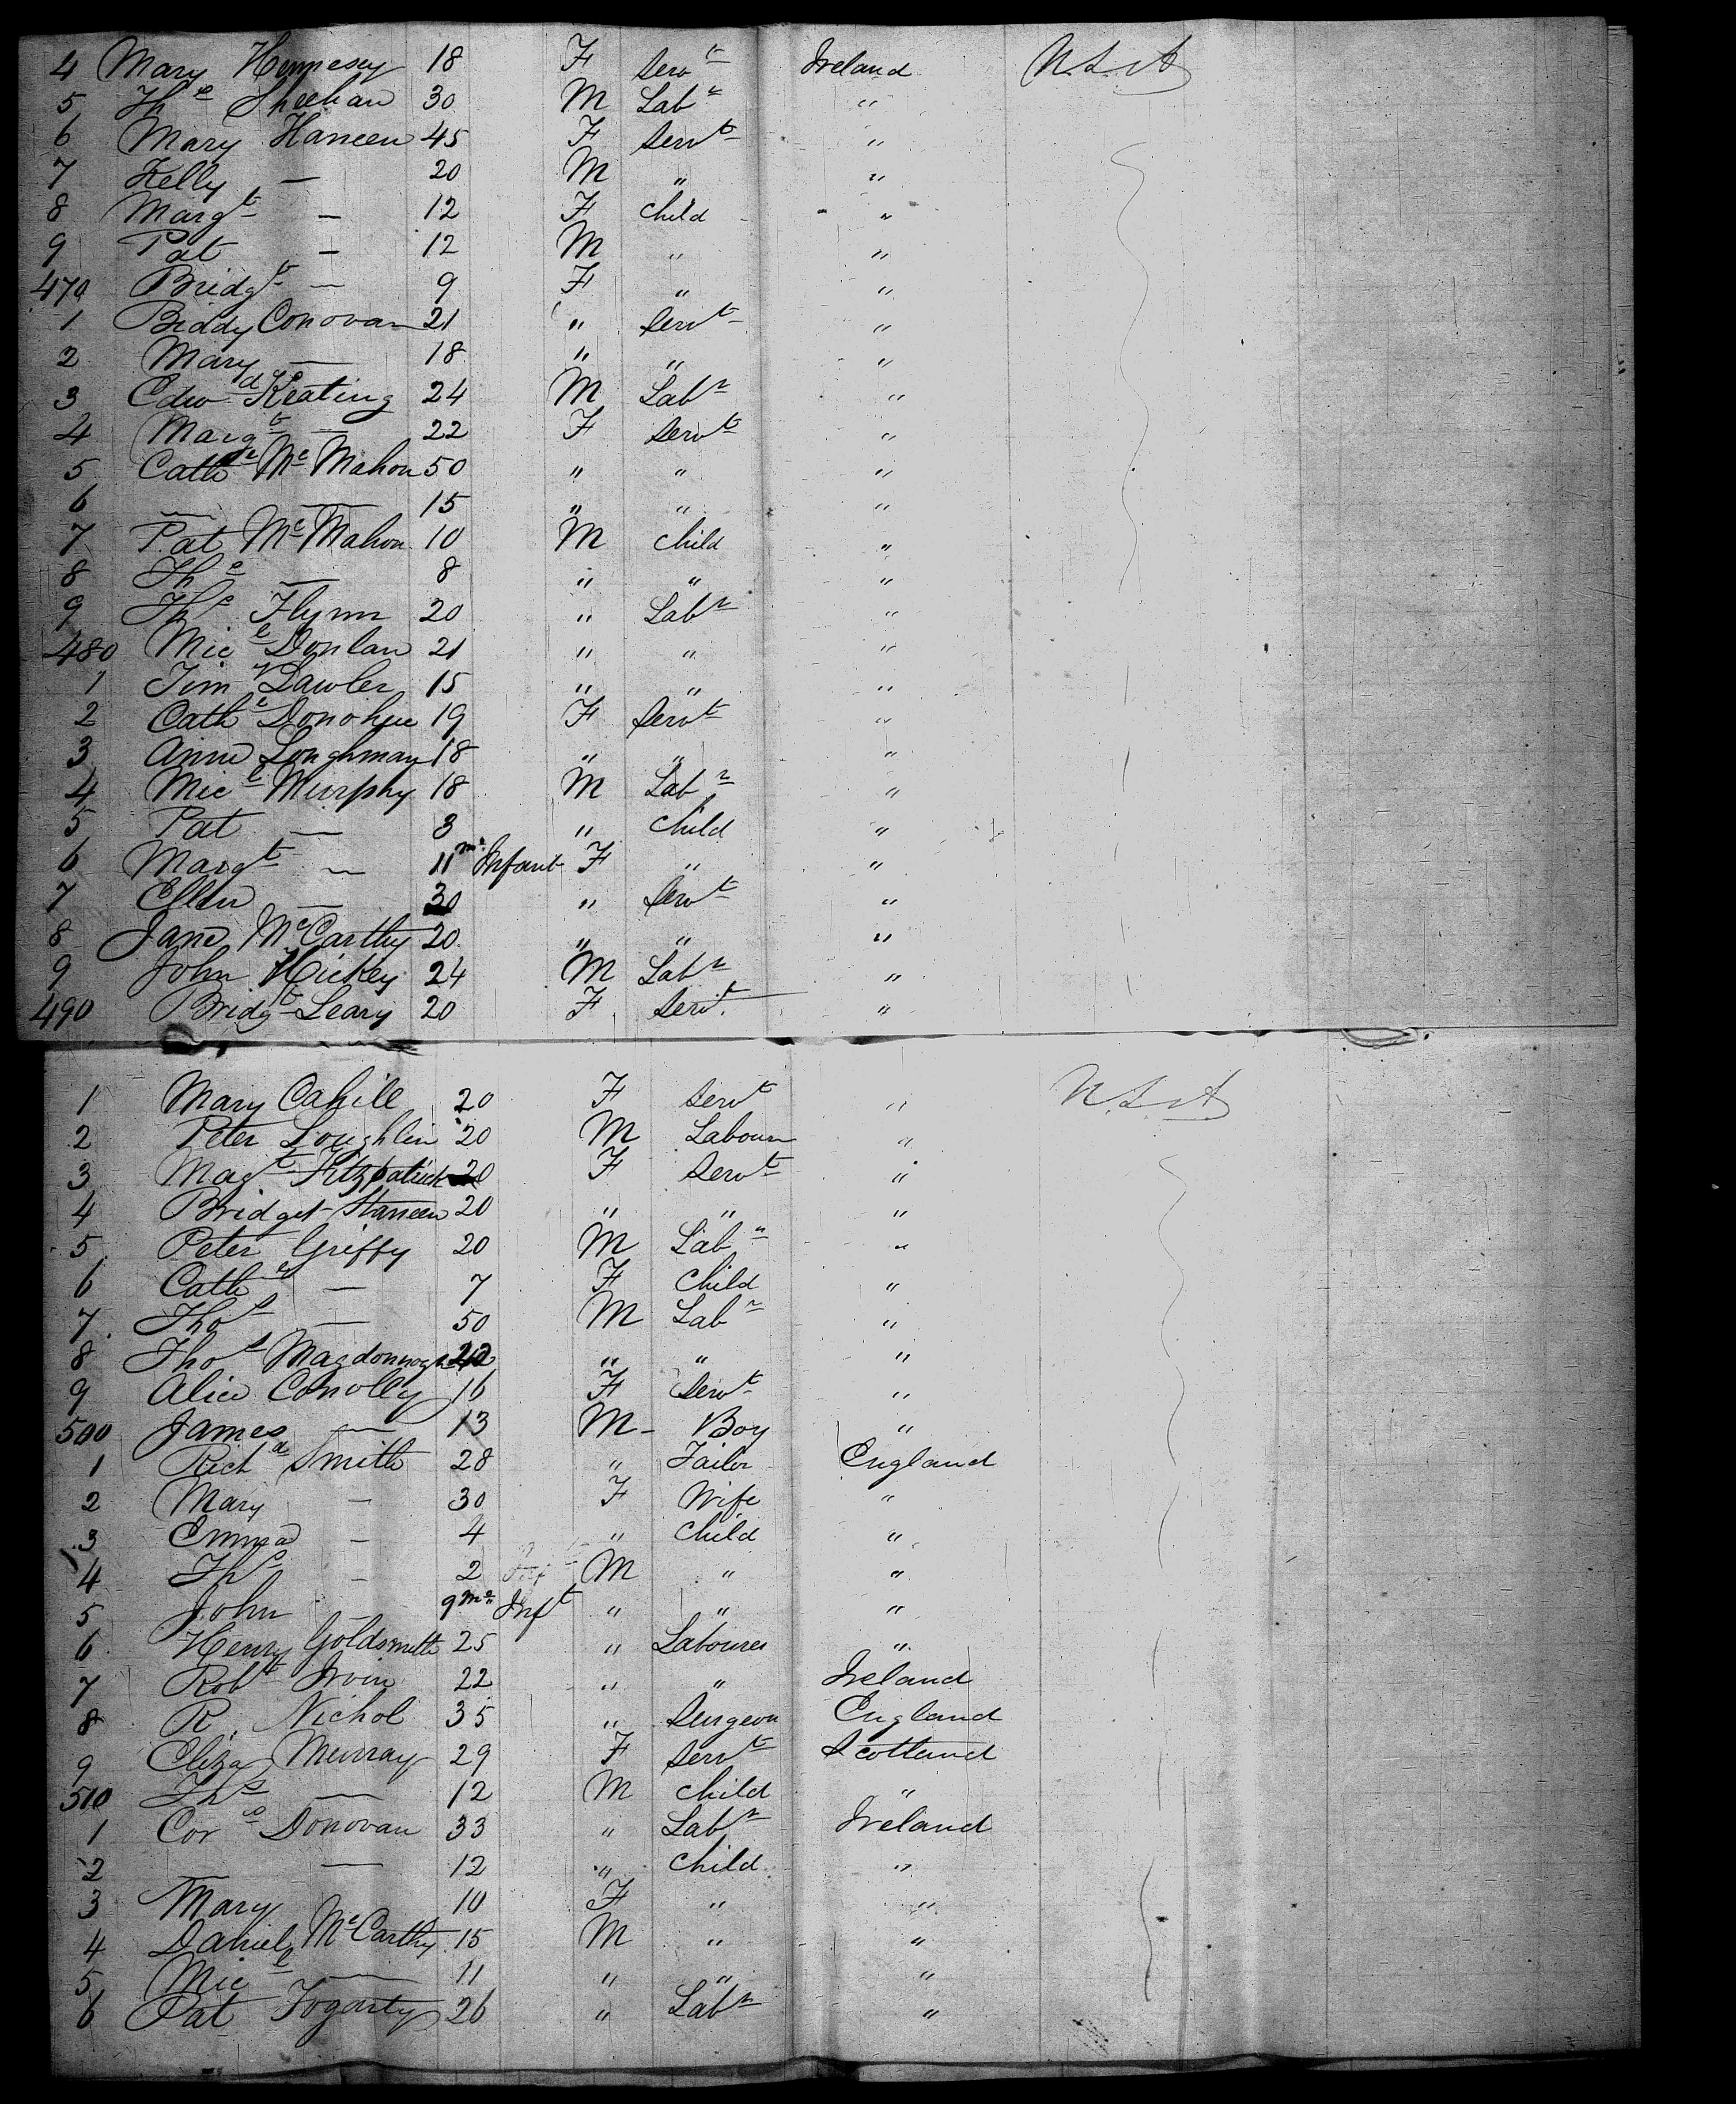 4 Mary Hennesey 18 F Servt Ireland U.S.A
5 Ths Sheehan 30 M Labr "
6 Mary Haneen 45 F Servt "
7 Kelly — 20 M " "
8 Margt — 12 F Child "
9 Pat — 12 M " "
470 Bridgt — 9 F " "
1 Biddy Conovan 21 " Servt "
2 Mary — 18 " " "
3 Edwd Keating 24 M Labr "
4 Margt — 22 F Servt "
5 Cathe Mc Mahon 50 " " "
6 — — 15 " " "
7 Pat Mc Mahon 10 M Child "
8 Ths — 8 " " "
9 Ths Flynn 20 " Labr "
480 Micl Donlan 21 " " "
1 Timy Lawler 15 " " "
2 Cathe Donohue 19 F Servt "
3 Anne Loughman 18 " " "
4 Micl Murphy 18 M Labr "
5 Pat — 3 " Child "
6 Margt — 11 ms Infant F " "
7 Ellen — 30 " Servt "
8 Jane McCarthy 20 " " "
9 John Hickey 24 M Labr "
490 Bridgt Leary 20 F Servt "
1 Mary Cahill 20 F Servt " U.S.A
2 Peter Loughlin 20 M Labour "
3 Magt Fitzpatrick 20 F Servt "
4 Bridget Haneen 20 " " "
5 Peter Griffy 20 M Labr "
6 Cathe — 7 F Child "
7 Thos — 50 M Labr "
8 Thos Magdonnogh " " "
9 Alice Conolly 16 F Servt "
500 James — 13 M Boy "
1 Richd Smith 28 " Tailor England
2 Mary — 30 F Wife "
3 Emma — 4 " Child "
4 Ths — 2 M " "
5 John 9 Ms Inft " " "
6 Henry Goldsmith 25 " Labourer "
7 Robt Irvin 22 " " Ireland
8 R. Nichol 35 " Surgeon England
9 Eliza Murray 29 F Servt Scotland
510 Ths — 12 M Child "
1 Cors Donovan 33 " Labr Ireland
2 — 12 " Child "
3 Mary 10 F " "
4 Daniel McCarthy 15 M " "
5 Micl — 11 " " "
6 Pat Fogarty 26 " Labr "